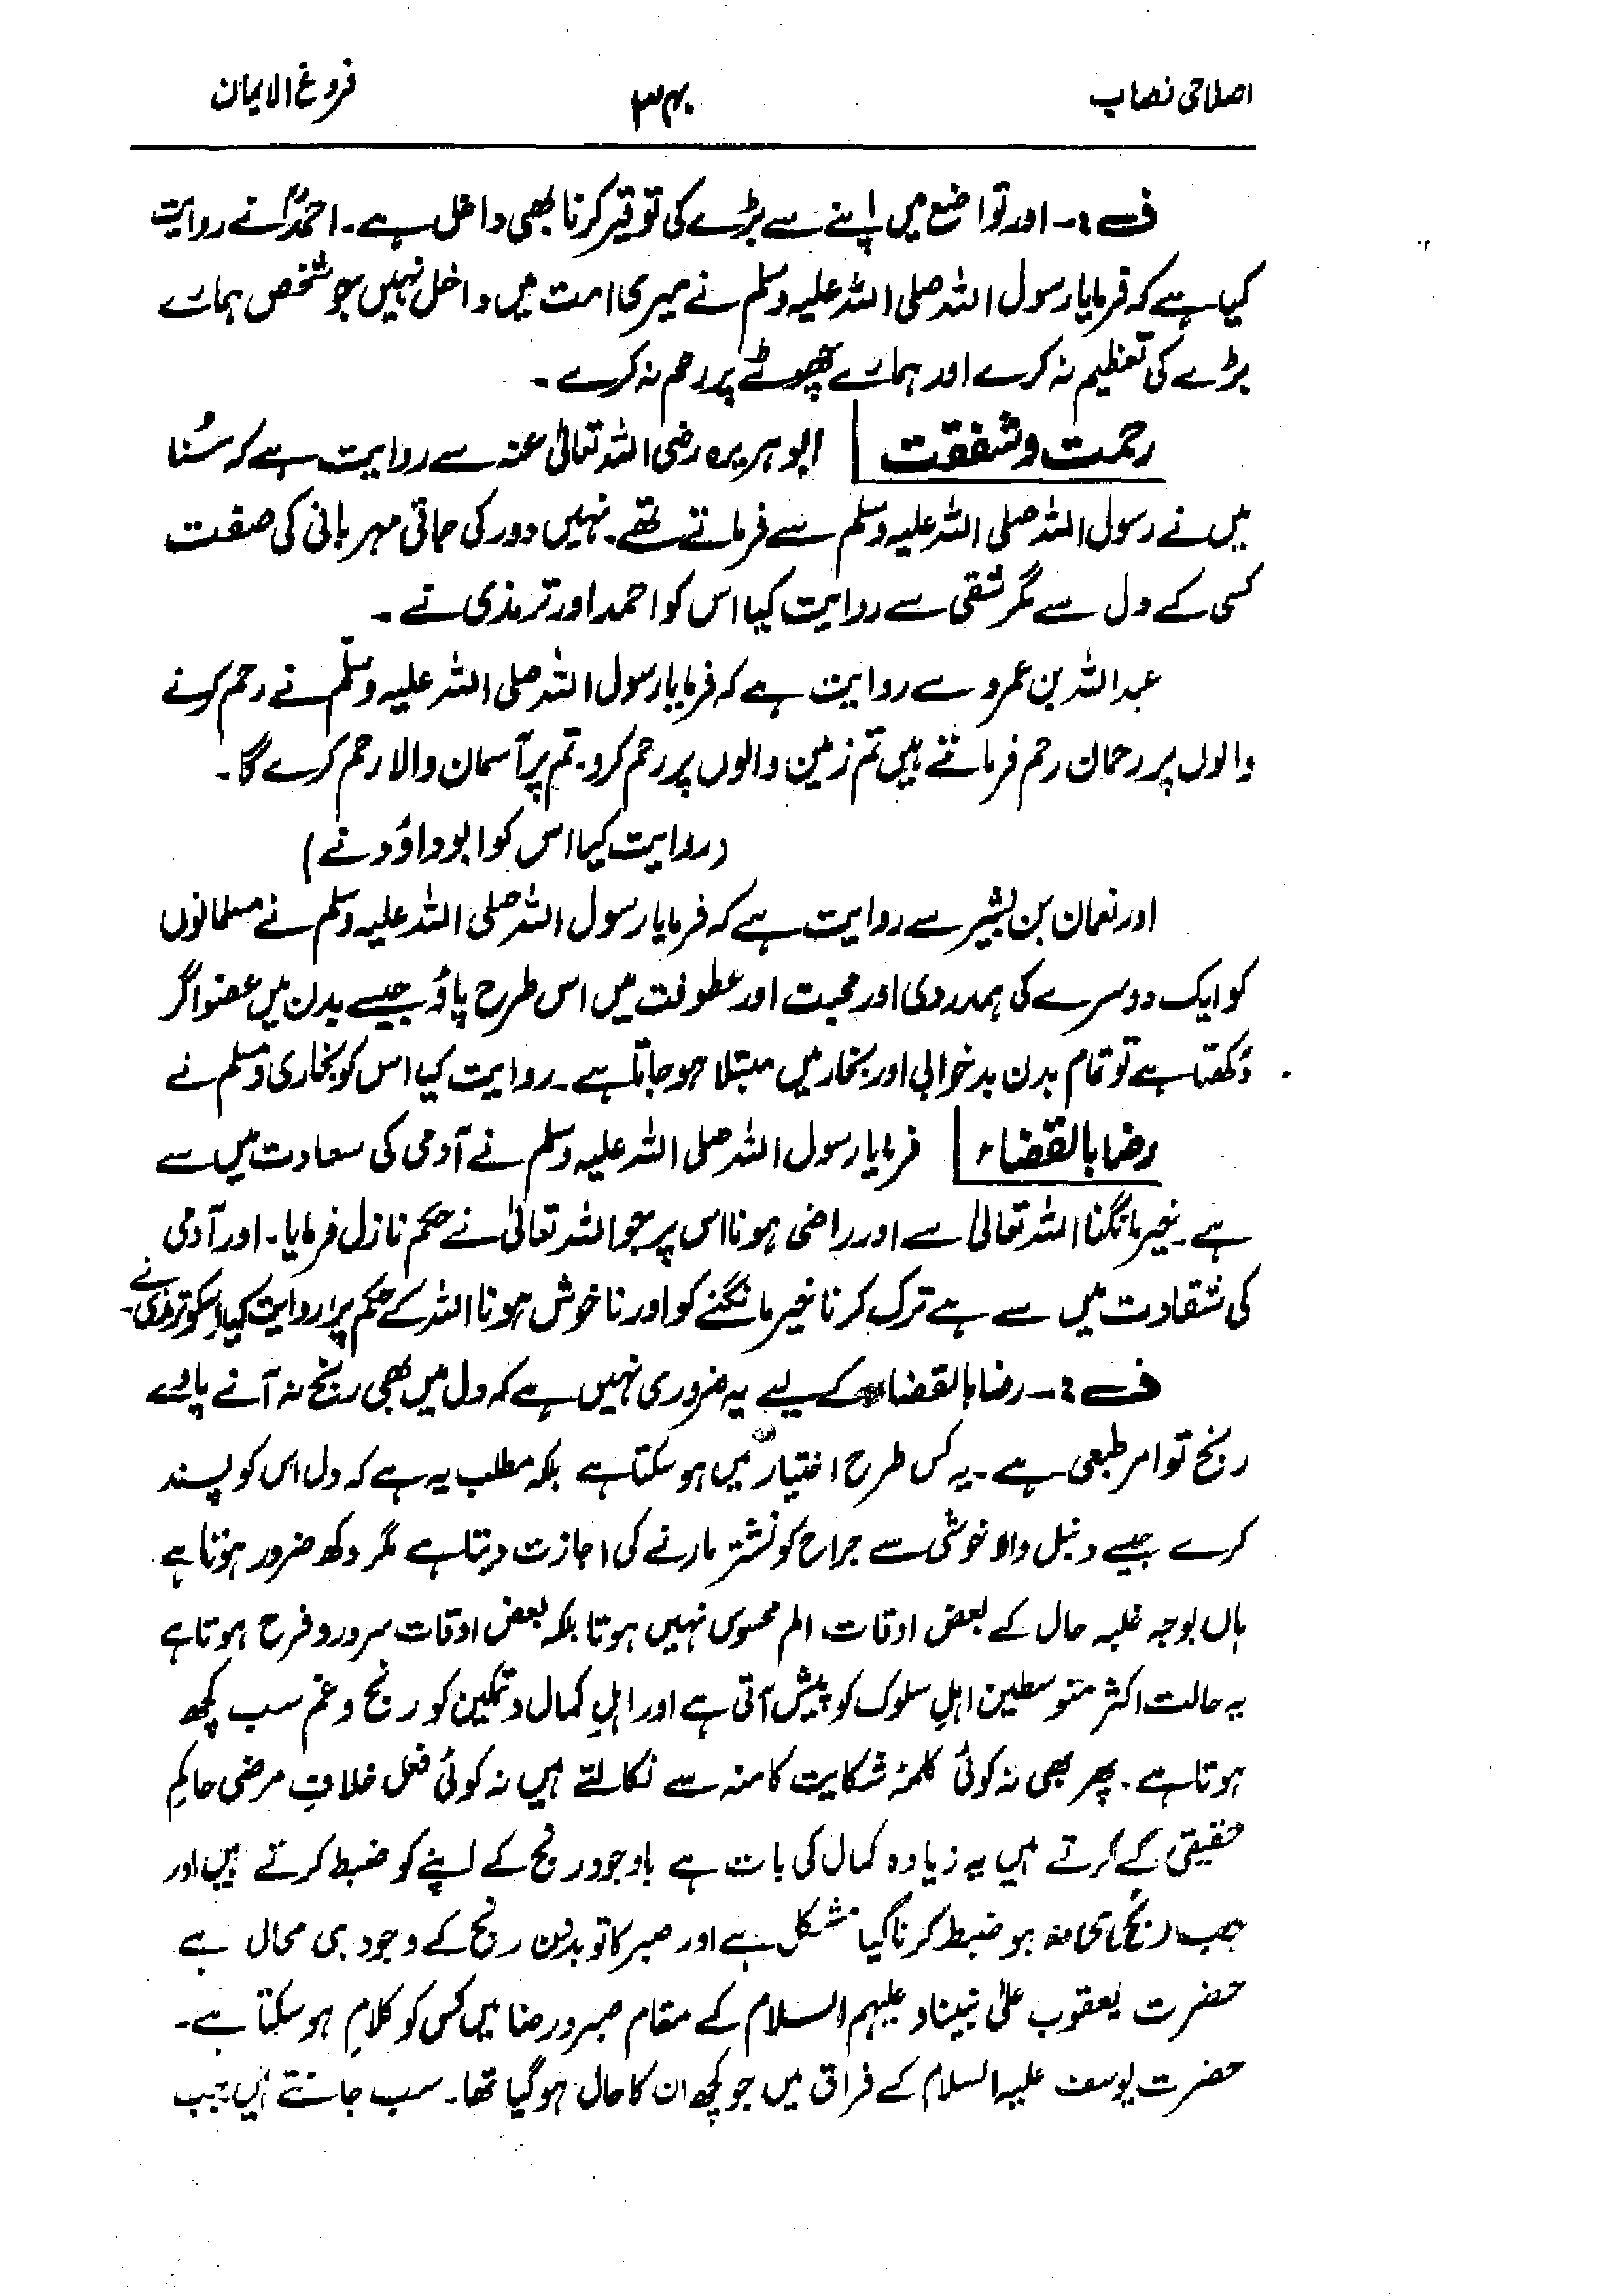 اصلاحی نصاب ۳۴۰ فروغ الایمان
ف :۔ اور تواضع میں اپنے سے بڑے کی توقیر کرنا بھی داخل ہے۔ احمدؒ نے روایت
کیا ہے کہ فرمایا رسول اللہ صلی اللہ علیہ وسلم نے میری امت میں داخل نہیں جو شخص ہمارے
بڑے کی تعظیم نہ کرے اور ہمارے چھوٹے پر رحم نہ کرے ۔
رحمت و شفقت ابوہریرہ رضی اللہ تعالیٰ عنہ سے روایت ہے کہ سُنا
میں نے رسول اللہ صلی اللہ علیہ وسلم سے فرماتے تھے۔ نہیں دور کی جاتی مہربانی کی صفت
کسی کے دل سے مگر شقی سے روایت کیا اس کو احمد اور ترمذی نے ۔
عبداللہ بن عمرو سے روایت ہے کہ فرمایا رسول اللہ صلی اللہ علیہ وسلّم نے رحم کرنے
والوں پر رحمان رحم فرماتے ہیں تم زمین والوں پر رحم کرو۔ تم پر آسمان والا رحم کرے گا۔
(روایت کیا اس کو ابوداؤد نے)
اور نعمان بن بشیر سے روایت ہے کہ فرمایا رسول اللہ صلی اللہ علیہ وسلم نے مسلمانوں
کو ایک دوسرے کی ہمدردی اور محبت اور عطوفت میں اس طرح پاؤ جیسے بدن میں عضو اگر
دُکھتا ہے تو تمام بدن بدخوابی اور بخار میں مبتلا ہو جاتا ہے۔ روایت کیا اس کو بخاری و مسلم نے
رضا بالقضاء فرمایا رسول اللہ صلی اللہ علیہ وسلم نے آدمی کی سعادت میں سے
ہے۔ خیر مانگنا اللہ تعالیٰ سے اور راضی ہونا اس پر جو اللہ تعالیٰ نے حکم نازل فرمایا۔ اور آدمی
کی شقاوت میں سے ہے ترک کرنا خیر مانگنے کو اور ناخوش ہونا اللہ کے حکم پر روایت کیا اسکو ترمذی نے۔
ف :۔ رضا بالقضاء کے لیے یہ ضروری نہیں ہے کہ دل میں بھی رنج نہ آنے پائے
رنج تو امر طبعی ہے۔ یہ کس طرح اختیار میں ہو سکتا ہے بلکہ مطلب یہ ہے کہ دل اس کو پسند
کرے جیسے دنبل والا خوشی سے جراح کو نشتر مارنے کی اجازت دیتا ہے مگر دکھ ضرور ہوتا ہے
ہاں بوجہ غلبہ حال کے بعض اوقات الم محسوس نہیں ہوتا بلکہ بعض اوقات سرور و فرح ہوتا ہے
یہ حالت اکثر متوسطین اہلِ سلوک کو پیش آتی ہے اور اہلِ کمال و تمکین کو رنج و غم سب کچھ
ہوتا ہے۔ پھر بھی نہ کوئی کلمۂ شکایت کا منہ سے نکالتے ہیں نہ کوئی فعل خلافِ مرضی حاکمِ
حقیقی کے کرتے ہیں یہ زیادہ کمال کی بات ہے باوجود رنج کے اپنے کو ضبط کرتے ہیں اور
جب رنج ہی نہ ہو ضبط کرنا کیا مشکل ہے اور صبر کا تو بدون رنج کے وجود ہی محال ہے
حضرت یعقوب علیٰ نبینا و علیہم السلام کے مقام صبر و رضا میں کس کو کلام ہو سکتا ہے۔
حضرت یوسف علیہ السلام کے فراق میں جو کچھ ان کا حال ہو گیا تھا۔ سب جانتے ہیں جب